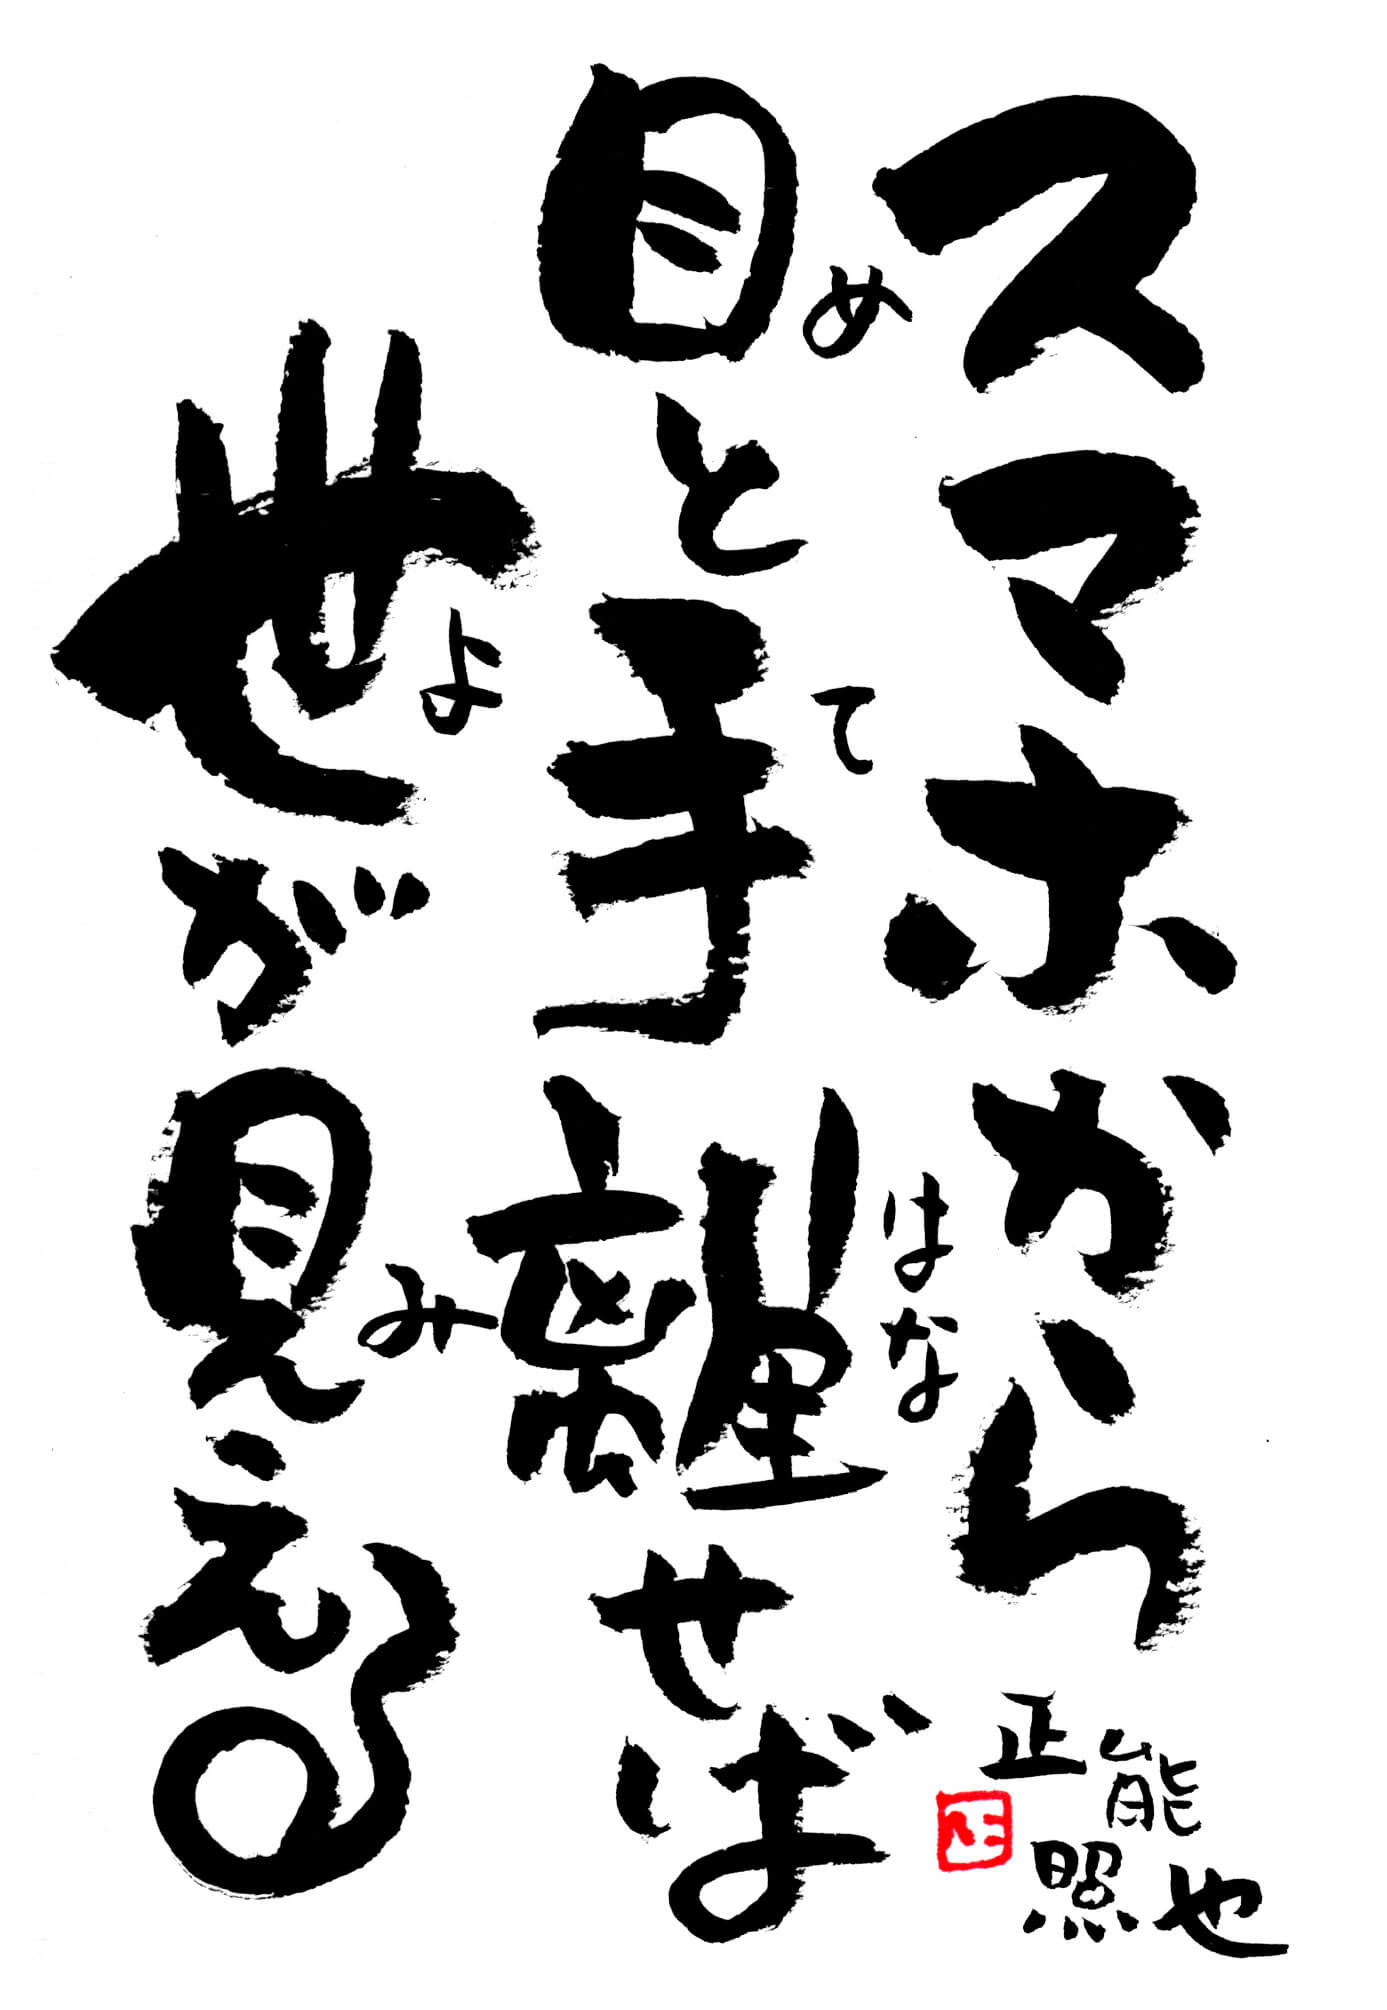 スマホから
目と手離せば
め
て
はな
世が見える
よ
み
正能
照也